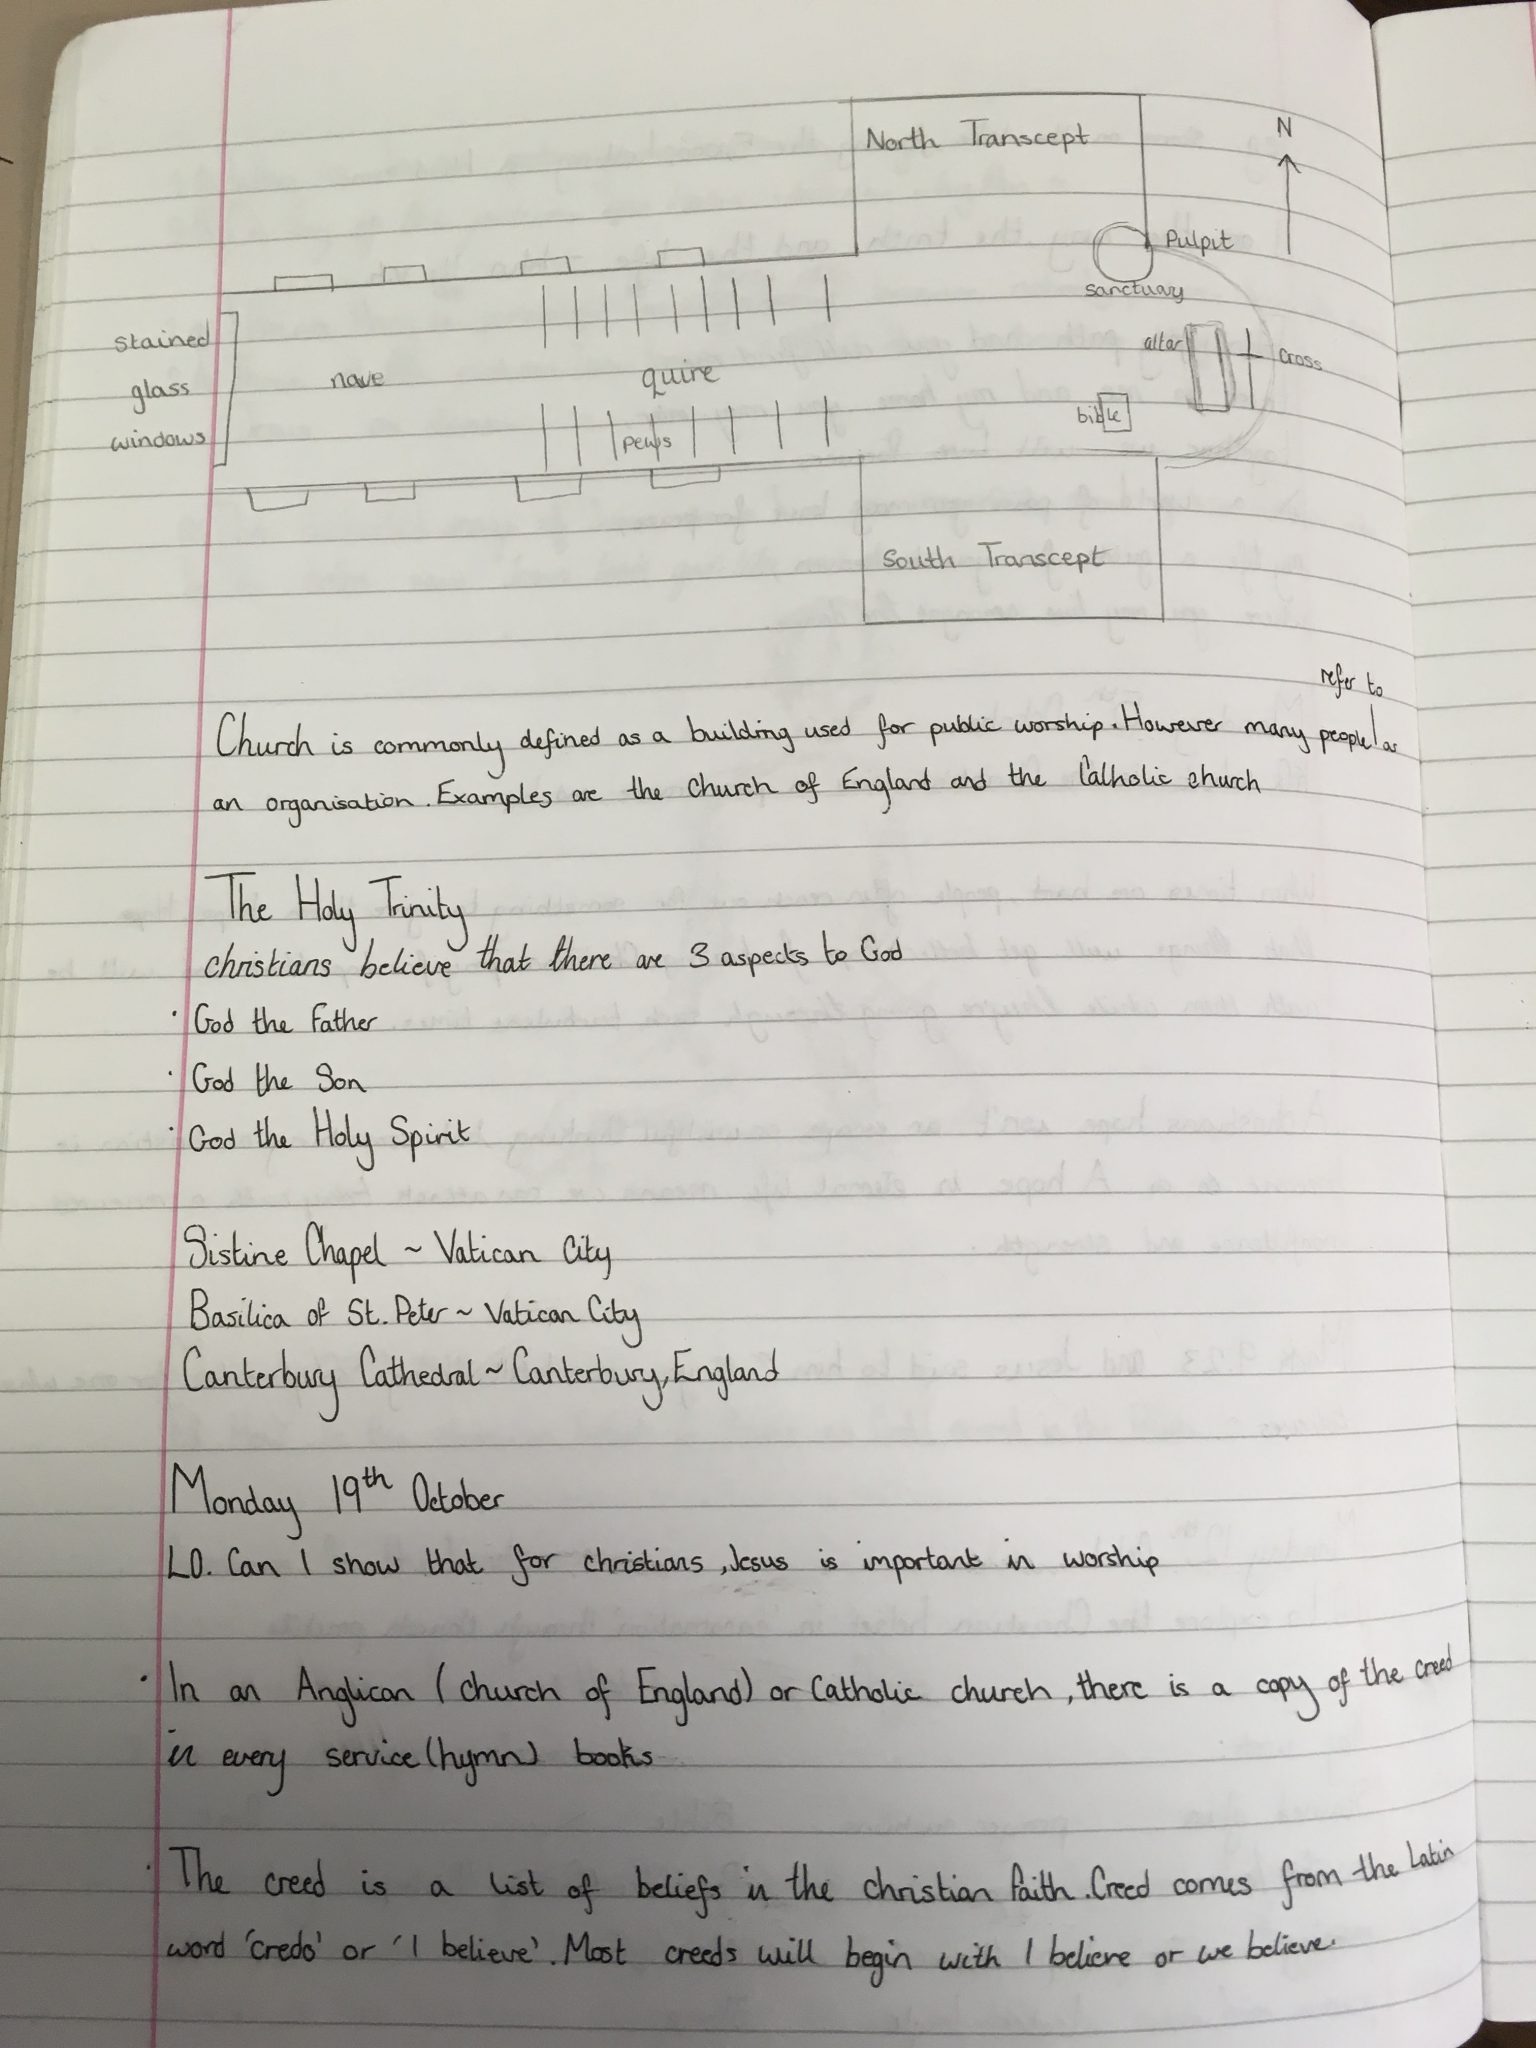 North Transcept
N
Pulpit
sanctuary
stained
glass
windows
nave
quire
altar
cross
bible
pews
South Transcept
refer to
Church is commonly defined as a building used for public worship. However many people as
an organisation. Examples are the Church of England and the Catholic church
The Holy Trinity
christians believe that there are 3 aspects to God
· God the Father
· God the Son
· God the Holy Spirit
Sistine Chapel ~ Vatican City
Basilica of St. Peter ~ Vatican City
Canterbury Cathedral ~ Canterbury, England
Monday 19th October
LO. Can I show that for christians, Jesus is important in worship
· In an Anglican (church of England) or Catholic church, there is a copy of the creed
in every service (hymn) books
· The creed is a list of beliefs in the christian faith. Creed comes from the Latin
word 'credo' or 'I believe'. Most creeds will begin with I believe or we believe.